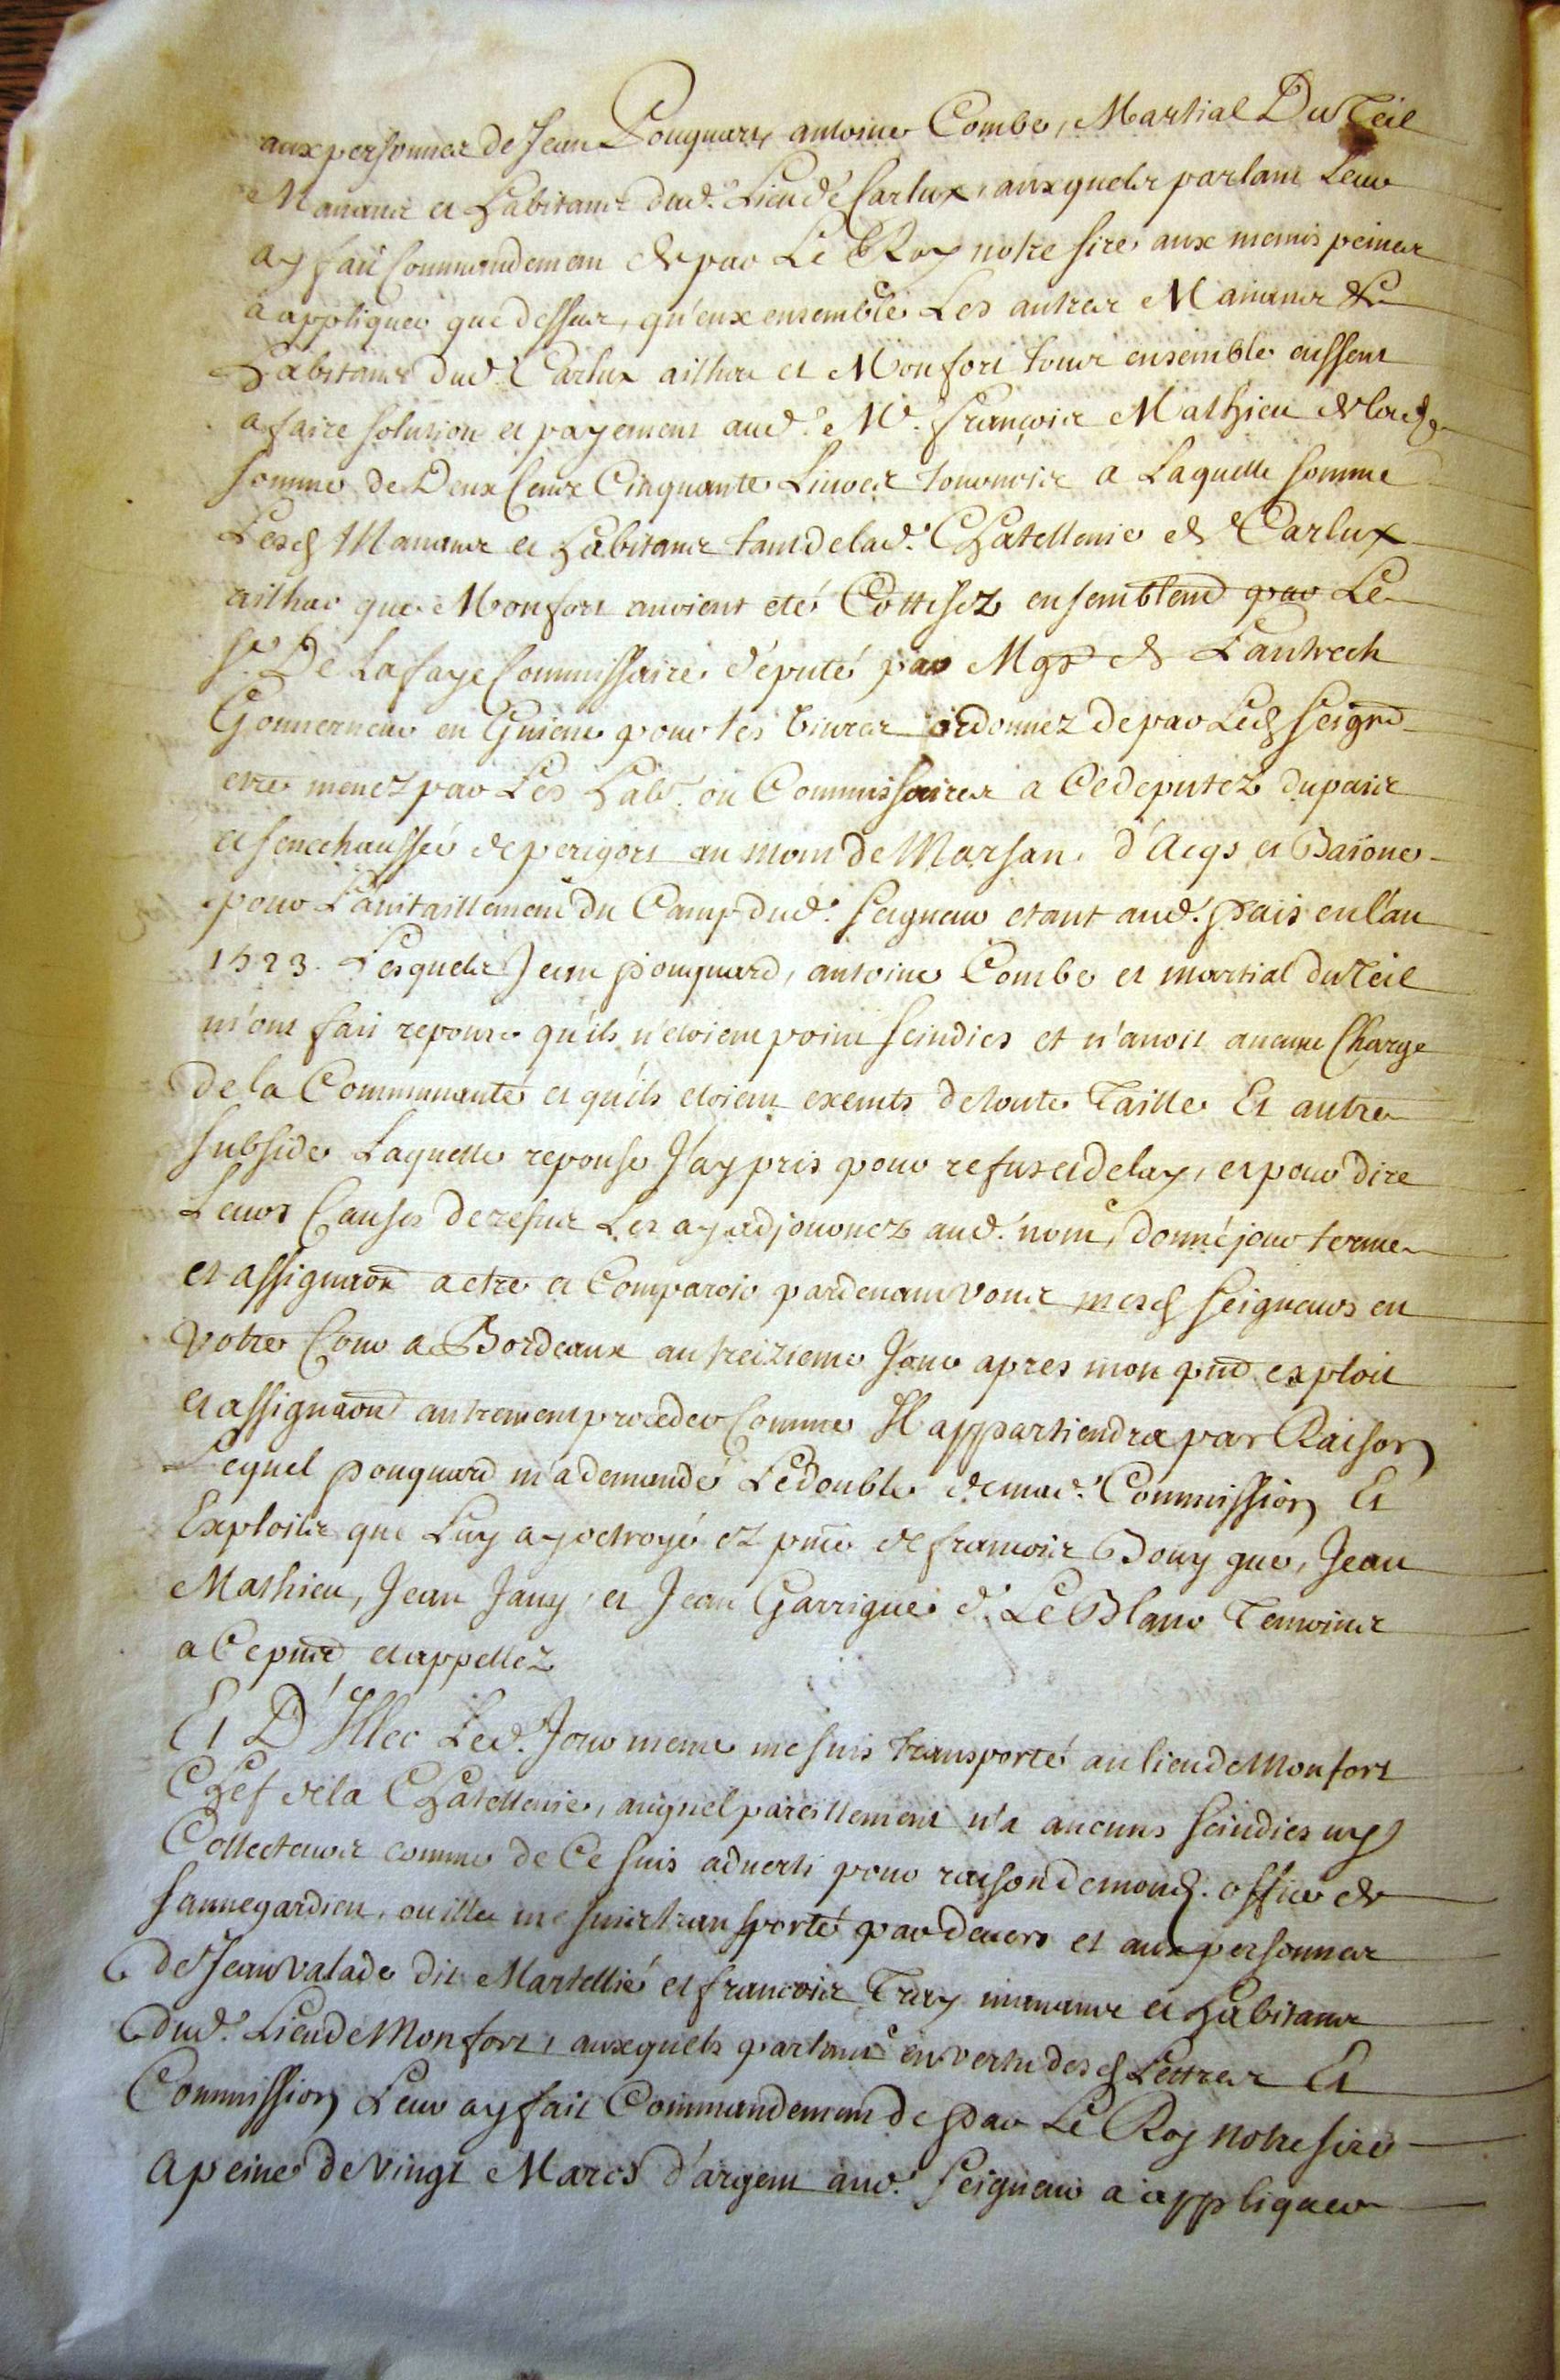 aux personnes de Jean Pouguard, antoine Combe, Martial Du Teil
Manans et habitans dud. Lieu de Carlux, auxquels parlant Leur
ay fait Commandement de par Le Roy notre sire aux memes peines
a appliquer que dessus, qu'eux ensemble Les autres Manans &
habitans dud. Carlux ailhac et Monfort tous ensemble eussent
a faire solution et payement aud. Me. françois Mathieu de lad.
somme de Deux Cens Cinquante Livres tournois a Laquelle somme
Lesd. Manans et habitans tant de lad. Chatellenie de Carlux
ailhac que Monfort auoient eté Cottisez ensemblemt par Le
Sr. De Lafaye Commissaire, député par Mgr de Lautrech
Gouuerneur en Guiene pour les Viures ordonnez de par Led. Seignr
etre menez par Les hab. ou Commissaires a Ce deputez du pais
et senechaussée de perigort au mont de Marsan, d'Acqs et Baïone
pour L'auitaillement du Camp dud. Seigneur etant aud. pais en l'an
1523. Lesquels Jean pouguard, antoine Combe et martial du Teil
m'ont fait reponse qu'ils n'etoient point scindics et n'auoit aucune Charge
de la Communauté et qu'ils etoient exemts de toute Taille Et autre
subside Laquelle reponse J'ay pris pour refus et delay, et pour dire
Leurs Causes de refus Les ay adjournez aud. nom, donné jour terme
et assignaon a etre et Comparoir pardeuant vous mesd. Seigneurs en
Votre Cour a Bordeaux au treizieme Jour apres mon pnt exploit
et assignaon autrement proceder Comme Il appartiendra par Raison
Lequel pouguard m'a demandé Le double de mad. Commission Et
Exploits que Luy ay octroyé ez pnce de francois Bouygue, Jean
Mathieu, Jean Jany, et Jean Garrigue d. Le Blanc Temoins
a Ce pnts et appellez
Et D'Illec Led. Jour meme me suis transporté au lieu de Monfort
Chef de la Chatellenie, auquel pareillement n'a aucuns scindics ny
Collecteurs comme de Ce suis aduerti pour raison de mond. office de
sauuegardien, ou illec me suis transporté par deuers et aux personnes
de Jean Valade dit Martellié et francois Tray manans et habitans
dud. Lieu de Monfort, auxquels parlant en vertu desd. Lettres Et
Commission Leur ay fait Commandement de par Le Roy notre sire
a peine de vingt Marcs d'argent aud. Seigneur a appliquer